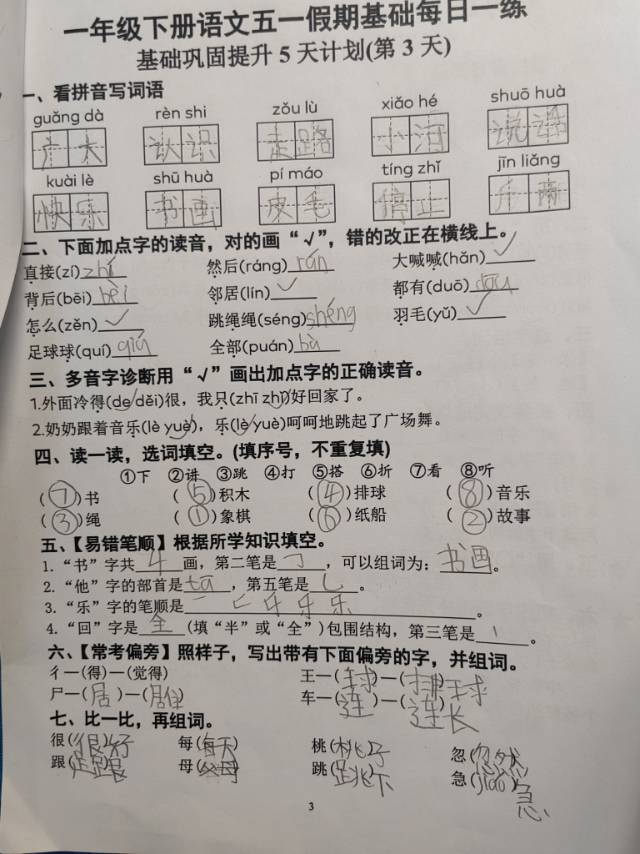 一年级下册语文五一假期基础每日一练
基础巩固提升5天计划(第3天)
一、看拼音写词语
guǎng dà rèn shi zǒu lù xiǎo hé shuō huà
广大 认识 走路 小河 说话
kuài lè shū huà pí máo tíng zhǐ jīn liǎng
快乐 书画 皮毛 停止 斤两
二、下面加点字的读音，对的画“√”，错的改正在横线上。
直接(zí) zhí 然后(ráng) rán 大喊喊(hǎn) √
背后(bēi) bèi 邻居(lín) √ 都有(duō) dōu
怎么(zěn) √ 跳绳绳(séng) shéng 羽毛(yǔ) √
足球球(quí) qiú 全部(puán) bù
三、多音字诊断用“√”画出加点字的正确读音。
1.外面冷得(de děi)很，我只(zhī zhǐ)好回家了。
2.奶奶跟着音乐(lè yuè)，乐(lè yuè)呵呵地跳起了广场舞。
四、读一读，选词填空。(填序号，不重复填)
①下 ②讲 ③跳 ④打 ⑤搭 ⑥折 ⑦看 ⑧听
(⑦)书 (⑤)积木 (④)排球 (⑧)音乐
(③)绳 (①)象棋 (⑥)纸船 (②)故事
五、【易错笔顺】根据所学知识填空。
1.“书”字共4画，第二笔是㇆，可以组词为：书画。
2.“他”字的部首是 tā，第五笔是乚。
3.“乐”字的笔顺是 乐。
4.“回”字是全(填“半”或“全”)包围结构，第三笔是丨。
六、【常考偏旁】照样子，写出带有下面偏旁的字，并组词。
彳—(得)—(觉得) 王—(球)—(排球)
尸—(居)—(居住) 车—(连)—(连长)
七、比一比，再组词。
很(很好) 每(每天) 桃(桃子) 忽(忽然)
跟(足跟) 母(父母) 跳(跳下) 急(jiāo急)
3